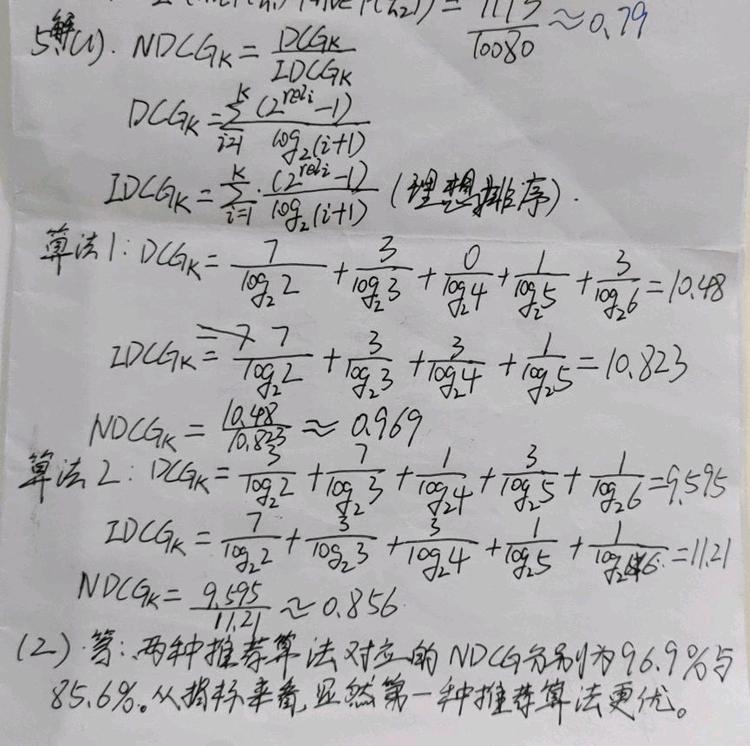 = 1115/10080 ≈ 0.79
5解(1). NDCG_K = DCG_K/IDCG_K
DCG_K = ∑_{i=1}^{K} (2^{reli}-1)/log₂(i+1)
IDCG_K = ∑_{i=1}^{K} (2^{reli}-1)/log₂(i+1) (理想排序).
算法1: DCG_K = 7/log₂2 + 3/log₂3 + 0/log₂4 + 1/log₂5 + 3/log₂6 = 10.48
IDCG_K = 7/log₂2 + 3/log₂3 + 3/log₂4 + 1/log₂5 = 10.823
NDCG_K = 10.48/10.823 ≈ 0.969
算法2: DCG_K = 3/log₂2 + 7/log₂3 + 1/log₂4 + 3/log₂5 + 1/log₂6 = 9.595
IDCG_K = 7/log₂2 + 3/log₂3 + 3/log₂4 + 1/log₂5 + 1/log₂6 = 11.21
NDCG_K = 9.595/11.21 ≈ 0.856
(2). 答: 两种推荐算法对应的NDCG分别为96.9%与
85.6%。从指标来看, 显然第一种推荐算法更优。